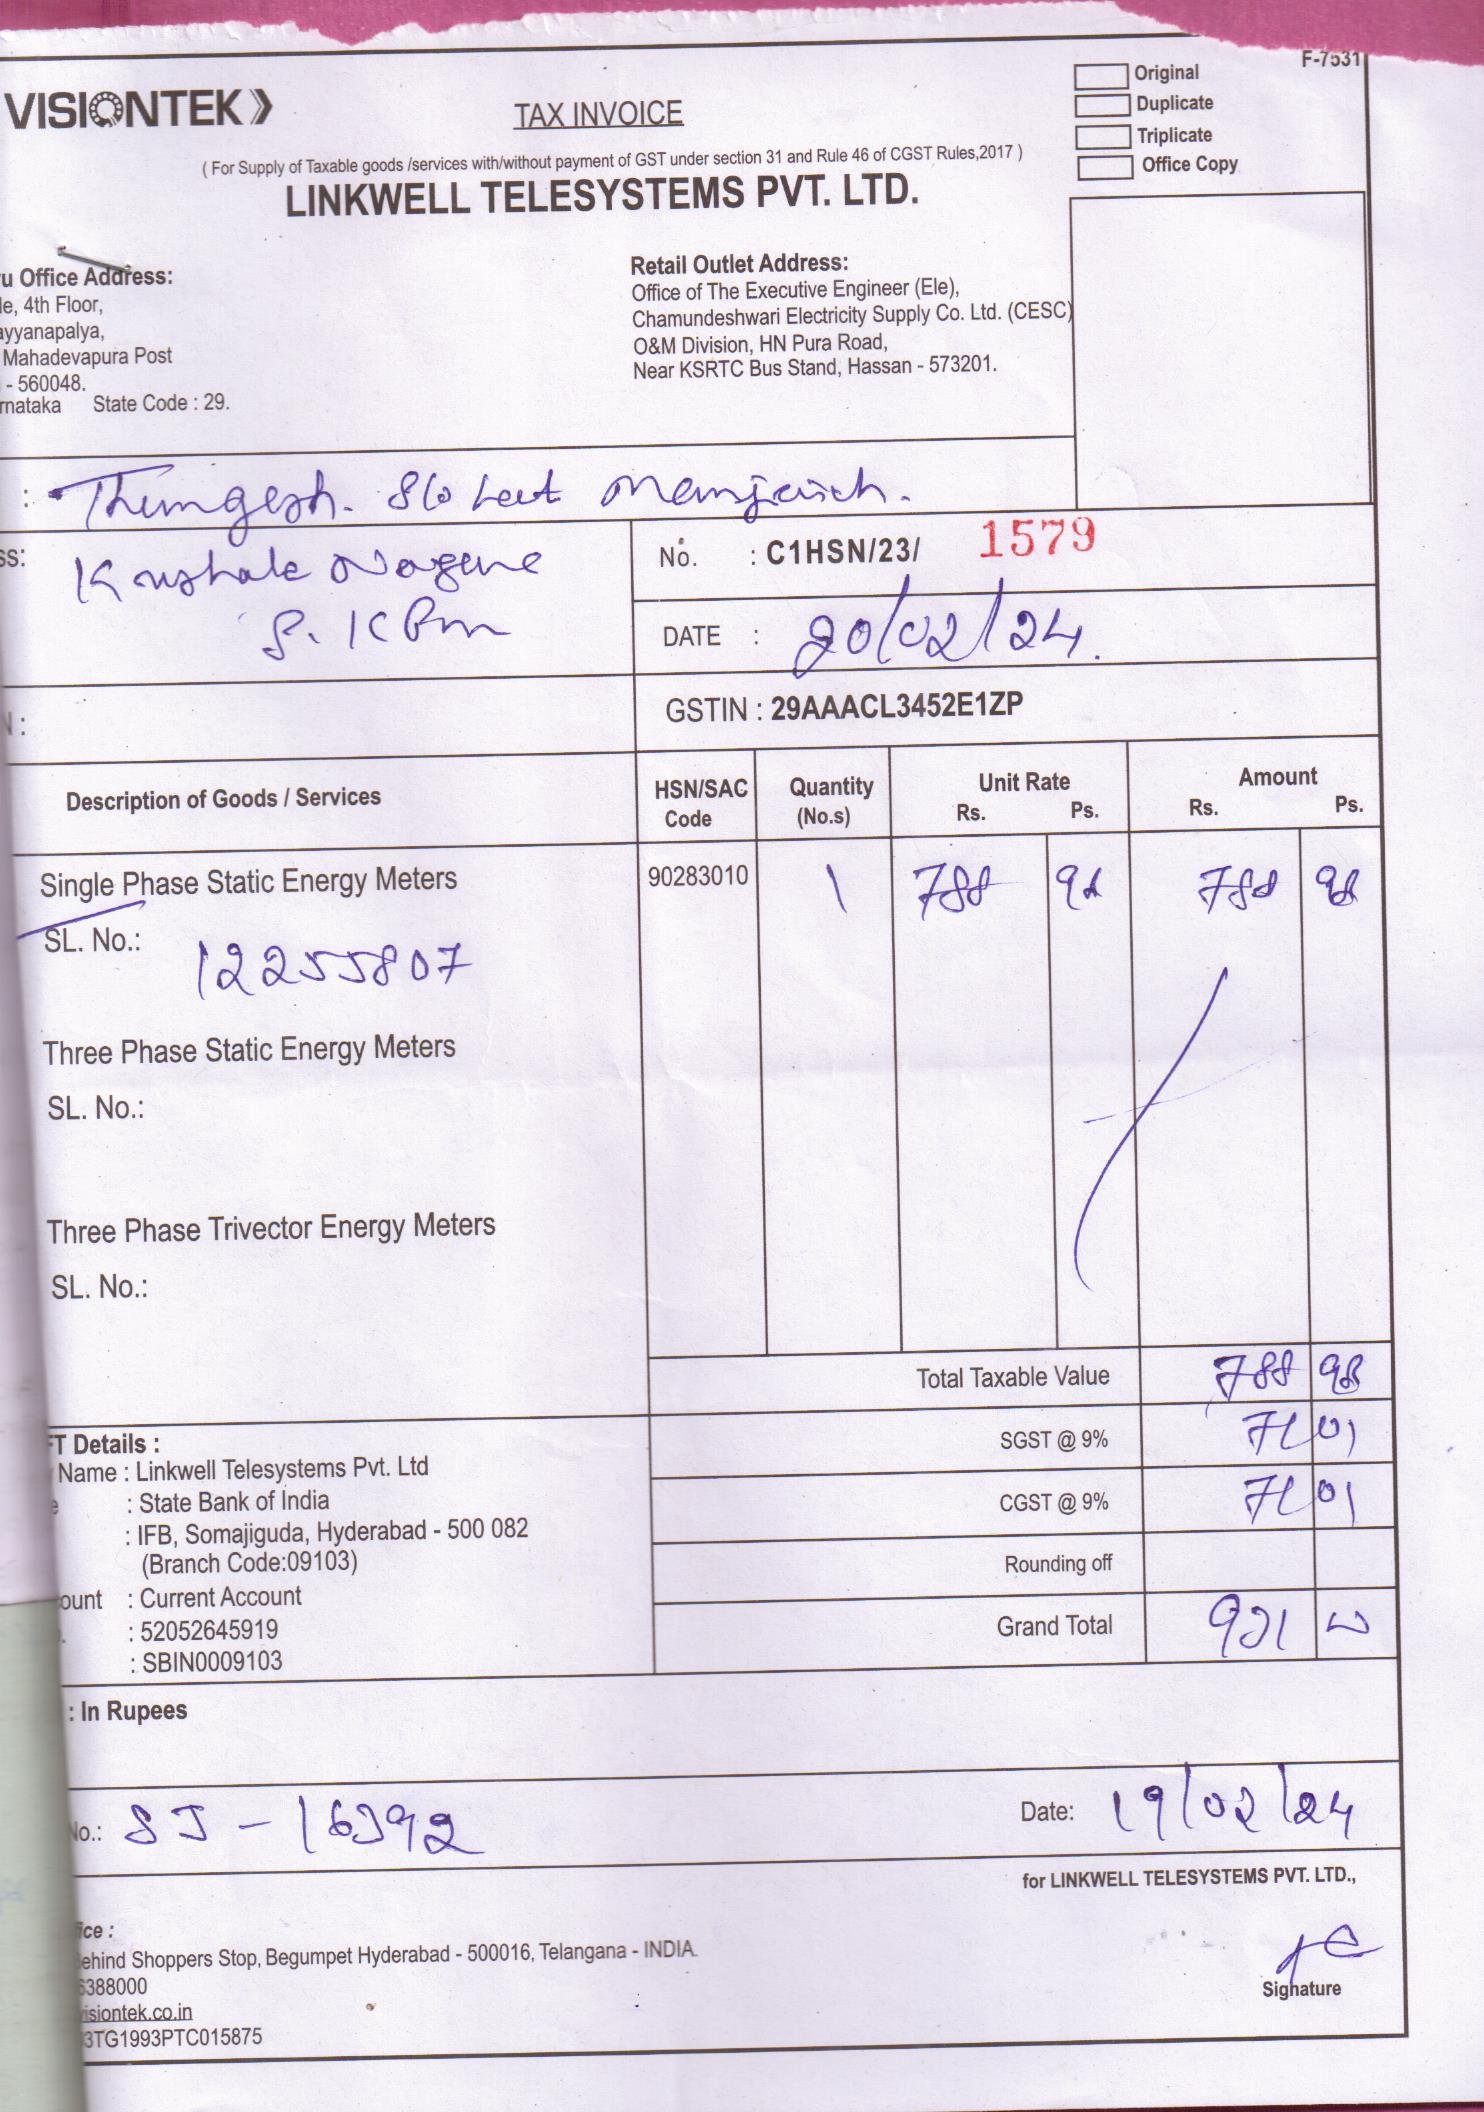 F-7531
VISIONTEK
TAX INVOICE
Original
Duplicate
Triplicate
Office Copy
( For Supply of Taxable goods /services with/without payment of GST under section 31 and Rule 46 of CGST Rules,2017 )
LINKWELL TELESYSTEMS PVT. LTD.
u Office Address:
le, 4th Floor,
ayyanapalya,
Mahadevapura Post
- 560048.
rnataka State Code : 29.
Retail Outlet Address:
Office of The Executive Engineer (Ele),
Chamundeshwari Electricity Supply Co. Ltd. (CESC)
O&M Division, HN Pura Road,
Near KSRTC Bus Stand, Hassan - 573201.
: S/o Late
ss:
No. : C1HSN/23/ 1579
DATE : 20/02/24.
N :
GSTIN : 29AAACL3452E1ZP
Description of Goods / Services HSN/SAC Code Quantity (No.s) Unit Rate Rs. Ps. Amount Rs. Ps.
Single Phase Static Energy Meters 90283010 1 788 98 788 98
SL. No.: 12255807
Three Phase Static Energy Meters
SL. No.:
Three Phase Trivector Energy Meters
SL. No.:
Total Taxable Value 788 98
SGST @ 9% 71 01
CGST @ 9% 71 01
Rounding off
Grand Total 931 00
FT Details :
Name : Linkwell Telesystems Pvt. Ltd
e : State Bank of India
: IFB, Somajiguda, Hyderabad - 500 082
(Branch Code:09103)
ount : Current Account
: 52052645919
: SBIN0009103
: In Rupees
No.: SJ - 16392 Date: 19/02/24
for LINKWELL TELESYSTEMS PVT. LTD.,
fice :
Behind Shoppers Stop, Begumpet Hyderabad - 500016, Telangana - INDIA.
6388000
visiontek.co.in
3TG1993PTC015875
Signature